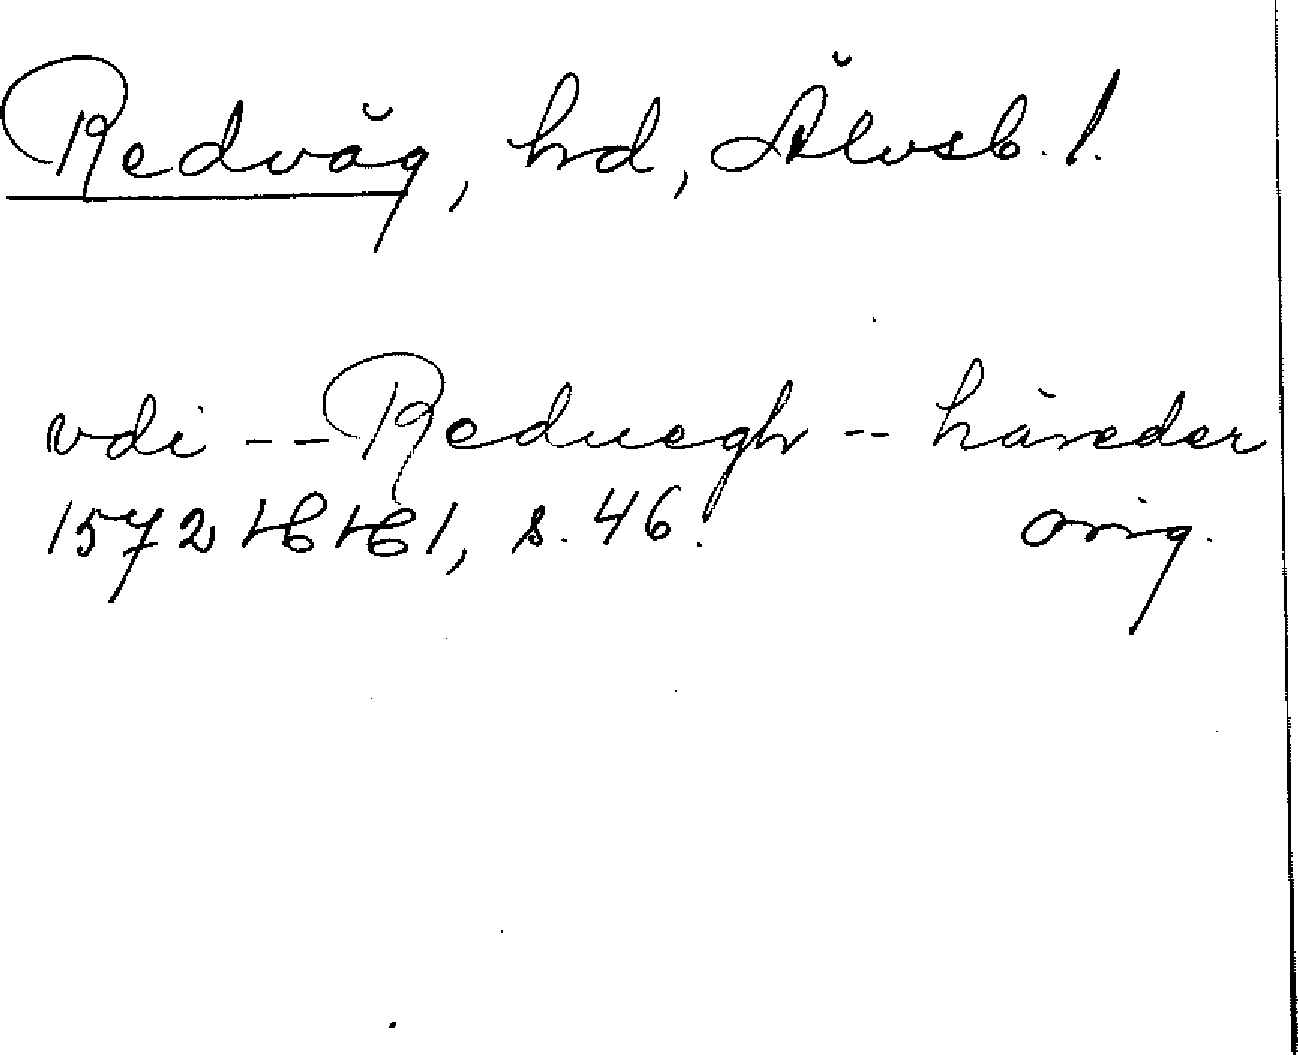 Redväg, hrd, Älvsb. l.
vdi -- Reduegh -- häreder
1572 HH 1, s. 46. orig.